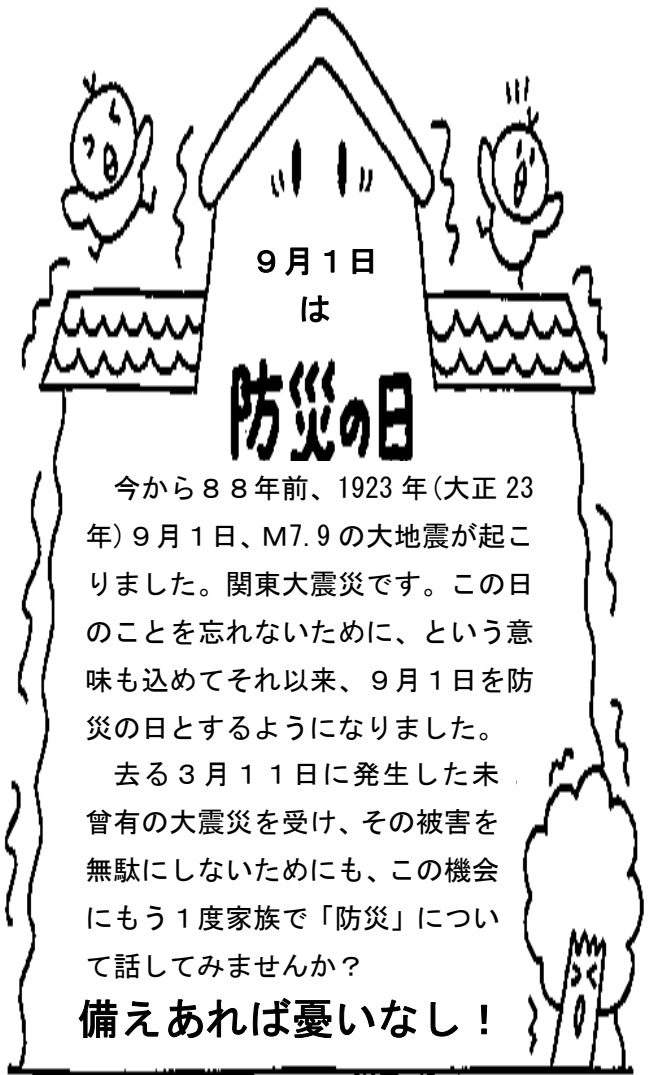 ９月１日
は
防災の日
今から８８年前、1923 年(大正 23
年)９月１日、M7.9 の大地震が起こ
りました。関東大震災です。この日
のことを忘れないために、という意
味も込めてそれ以来、９月１日を防
災の日とするようになりました。
去る３月１１日に発生した未
曾有の大震災を受け、その被害を
無駄にしないためにも、この機会
にもう１度家族で「防災」につい
て話してみませんか？
備えあれば憂いなし！